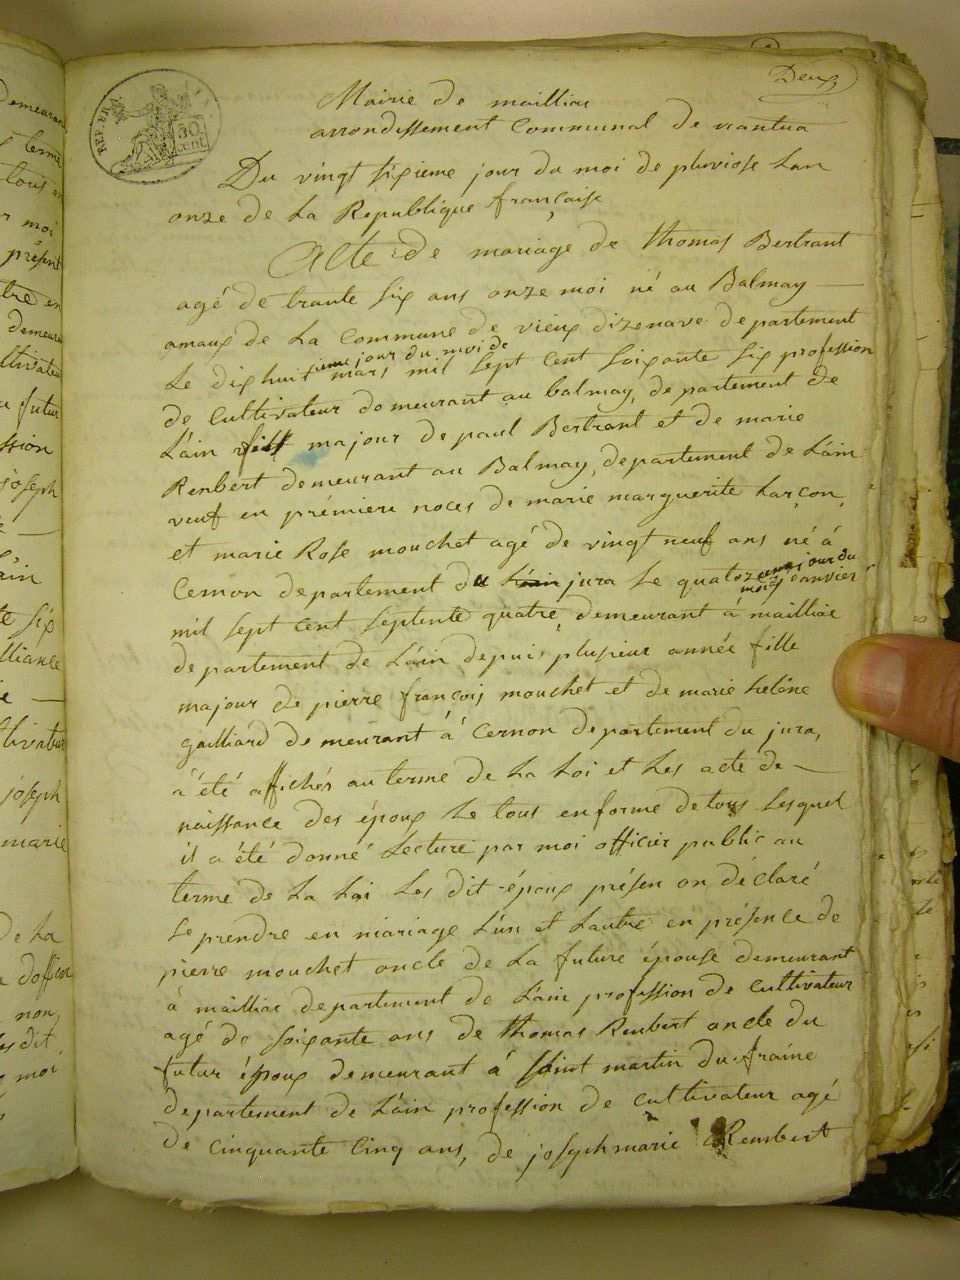 Deux
REP. FRA.
30 cent
Mairie de maillias
arrondissement Communal de nantua
Du vingt sixieme jour du moi de pluviose Lan
onze de La Republique française
Acte de mariage de thomas Bertrant
agé de trante six ans onze moi né au Balmay
amaux de La Commune de vieux dizenave departement
Le dixhuitiemejour du moi de mars mil sept cent soixante six profession
de Cultivateur domeurant au balmay, departement de
L'ain fils majour de paul Bertrant et de marie
Renbert demeurant au Balmay, departement de L'ain
veuf en prémiere noces de marie marguerite Larçon,
et marie Rose mouchet agé de vingt neuf ans né à
Cernon departement du L'ain jura Le quatozeme jour du moi janvier
mil sept cent septente quatre, demeurant a mailliac
departement de L'ain depuis plusieur année fille
majour de pierre françois mouchet et de marie heléne
gailliard demeurant à Cernon departement du jura,
à été affichés au terme de La Loi et Les acte de
naissance des époux Le tous en forme de tous Lesquel
il a été donné Lecture par moi officier public au
terme de La Loi Les dit époux présen on déclaré
Se prendre en mariage L'un et Lautre en présence de
pierre mouchet oncle de La future épouse demeurant
à mailliac departement de L'ain profession de Cultivateur
agé de soixante ans de thomas Renbert oncle du
futur époux demeurant à saint martin du fraine
departement de L'ain profession de cultivateur agé
de cinquante cinq ans, de josephmarie Rembert